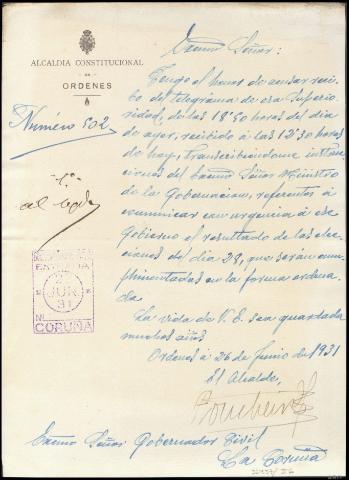 ALCALDIA CONSTITUCIONAL
DE
ORDENES
Número 502
Excmo Señor:
Tengo el honor de acusar reci-
bo del telegrama de esa Superio-
ridad, de las 18'50 horas del dia
de ayer, recibido á las 12'30 horas
de hoy, transcribiendome instruc-
ciones del Excmo Señor Ministro
de la Gobernacion, referentes á
comunicar con urgencia á ese
Gobierno el resultado de las elec-
ciones del dia 28, que serán cum-
plimentadas en la forma ordena
da.
La vida de V. E. sea guardada
muchos años
Ordenes á 26 de Junio de 1931
El Alcalde,
al
ENTRADA
JUN
31
CORUÑA
Excmo Señor Gobernador Civil
La Coruña